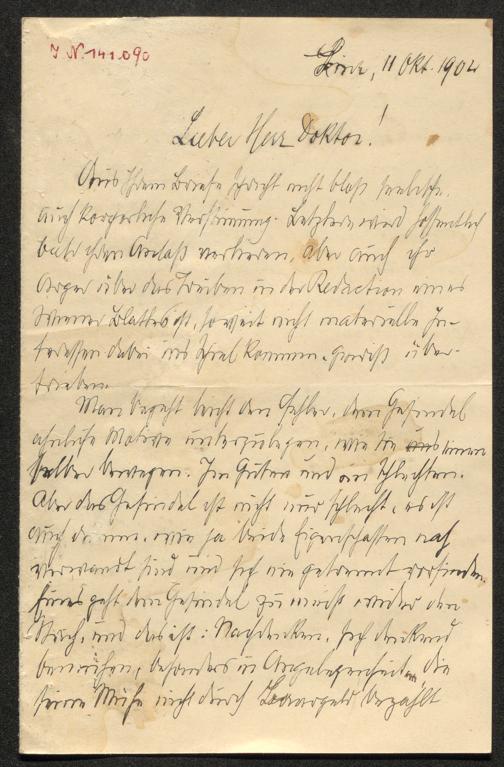 J.N. 141.090
Linz, 11 Okt. 1904
Lieber Herr Doktor!
Aus Ihrem Briefe spricht nicht bloß seelische,
auch körperliche Verstimmung. Letztere wird hoffentlich
bald ihren Anlaß verlieren, aber auch ihr
Ärger über das Treiben in der Redaction eines
Wiener Blattes ist, soweit nicht materielle In-
teressen dabei ins Spiel kommen, gewiß über-
trieben.
Man begeht leicht den Fehler, dem Gesindel
ähnliche Motive unterzulegen, wie sie uns immer
selber bewegen. Im Guten und im Schlechten.
Aber das Gesindel ist nicht nur schlecht, es ist
auch dumm, wie ja beide Eigenschaften nah
verwandt sind und sich nie getrennt vorfinden.
Eines geht dem Gesindel zu meist wider den
Strich, und das ist: Nachdenken, sich denkend
bemühen, besonders in Angelegenheiten, die
seine Mühe nicht durch Baargeld bezahlt